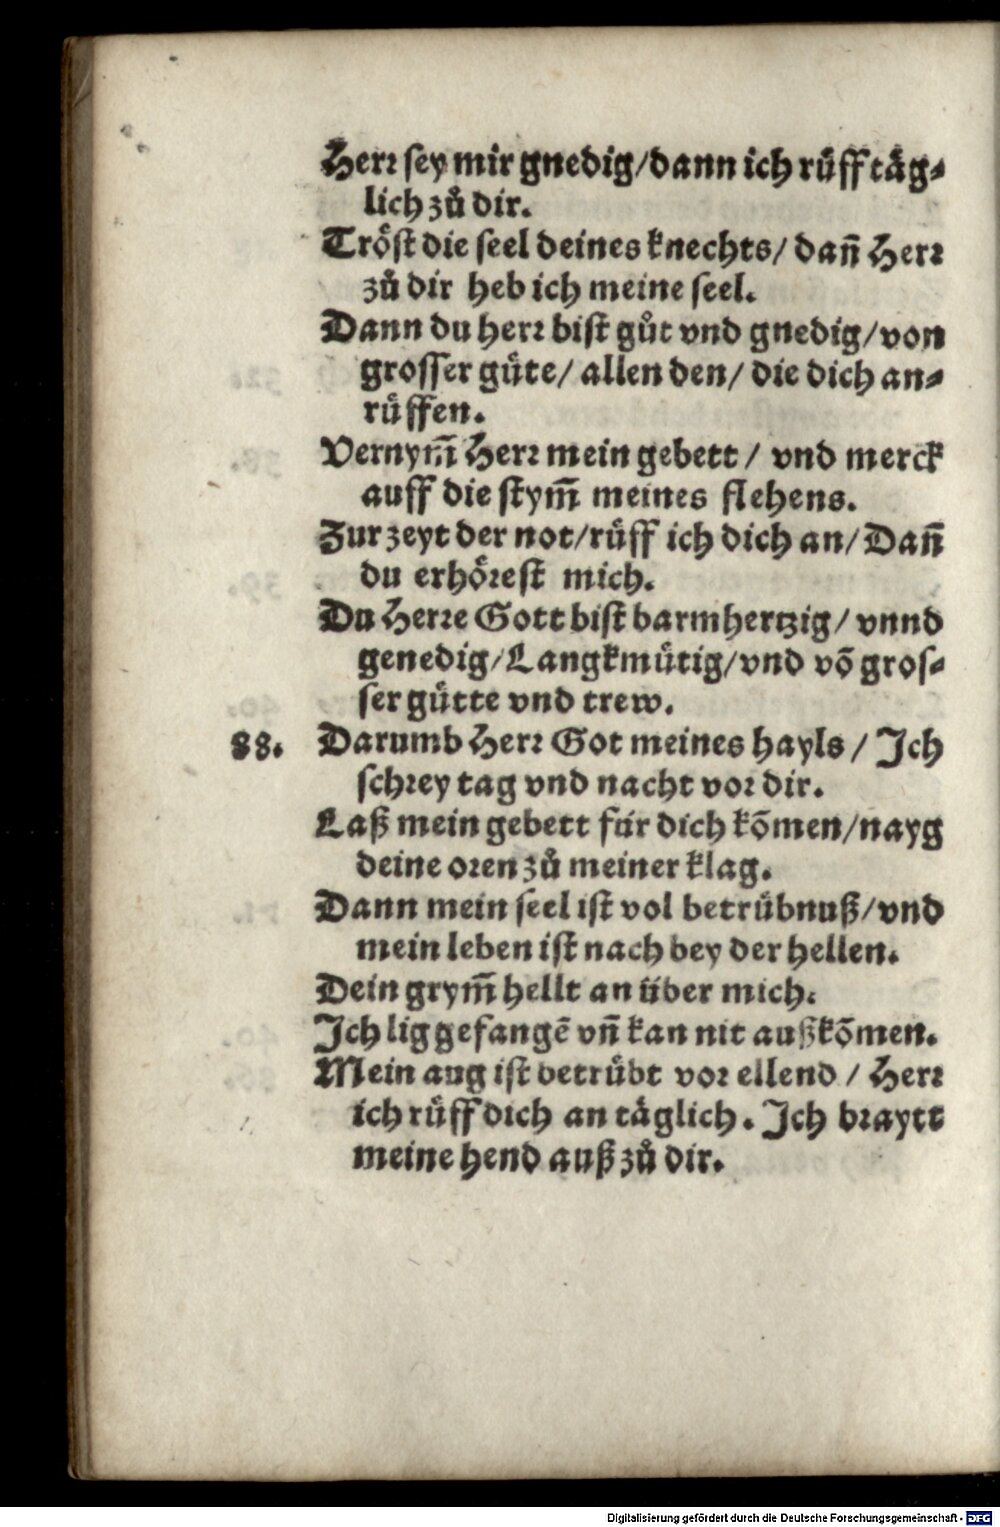 Herr sey mir gnedig/dann ich rüff täg-
lich zů dir.
Tröst die seel deines knechts/ dañ Herr
zů dir heb ich meine seel.
Dann du herr bist gůt vnd gnedig/von
grosser güte/ allen den/ die dich an-
rüffen.
Vernym̄ Herr mein gebett / vnd merck
auff die stym̄ meines flehens.
Zur zeyt der not/rüff ich dich an/Dañ
du erhörest mich.
Du Herre Gott bist barmhertzig/ vnnd
genedig/Langkmütig/vnd võ gros-
ser gütte vnd trew.
88. Darumb Herr Got meines hayls / Ich
schrey tag vnd nacht vor dir.
Laß mein gebett für dich kõmen/nayg
deine oren zů meiner klag.
Dann mein seel ist vol betrübnuß/vnd
mein leben ist nach bey der hellen.
Dein grym̄ hellt an über mich.
Ich lig gefangẽ vñ kan nit außkõmen.
Mein aug ist betrübt vor ellend / Herr
ich rüff dich an täglich. Ich braytt
meine hend auß zů dir.
Digitalisierung gefördert durch die Deutsche Forschungsgemeinschaft - DFG